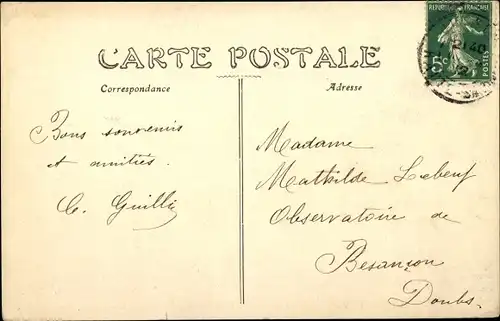 RÉPUBLIQUE FRANÇAISE
5c
POSTES
CARTE POSTALE
Correspondance
Adresse
Bons souvenirs
et amitiés.
Madame
Mathilde Lebeuf
Observatoire de
Besançon
Doubs.